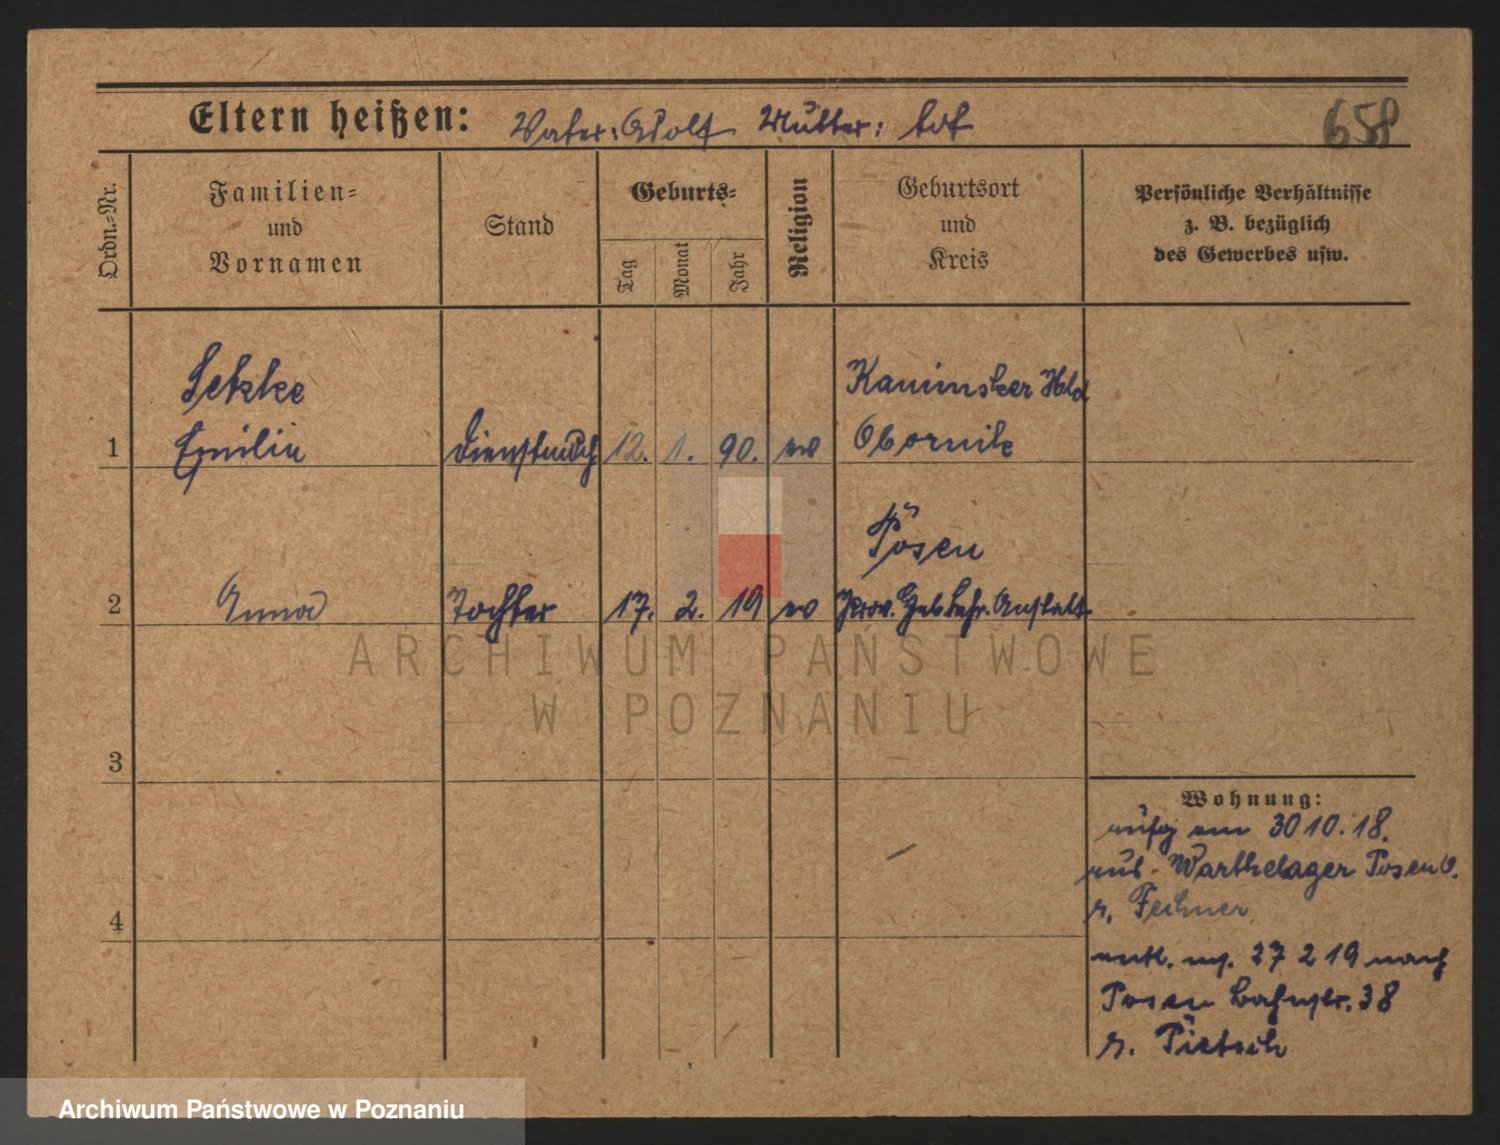 Eltern heißen: Vater: Adolf Mutter: tot
658
Ordn.=Nr.
Familien=
und
Vornamen
Stand
Geburts=
Tag
Monat
Jahr
Religion
Geburtsort
und
Kreis
Persönliche Verhältnisse
z. B. bezüglich
des Gewerbes usw.
1
Setzke
Emilie
Dienstmdch
12. 1. 90.
ev
Kaminsker Hld
Obornik
2
Anna
Tochter
17. 2. 19
ev
Posen
Prov. Heb. Lehr. Anstalt
3
4
Wohnung:
aufg am 30 10. 18.
aus Warthelager Posen O.
b. Fechner
entl. 27 2 19 nach
Posen 38
b. Pietsch
ARCHIWUM PAŃSTWOWE
W POZNANIU
Archiwum Państwowe w Poznaniu